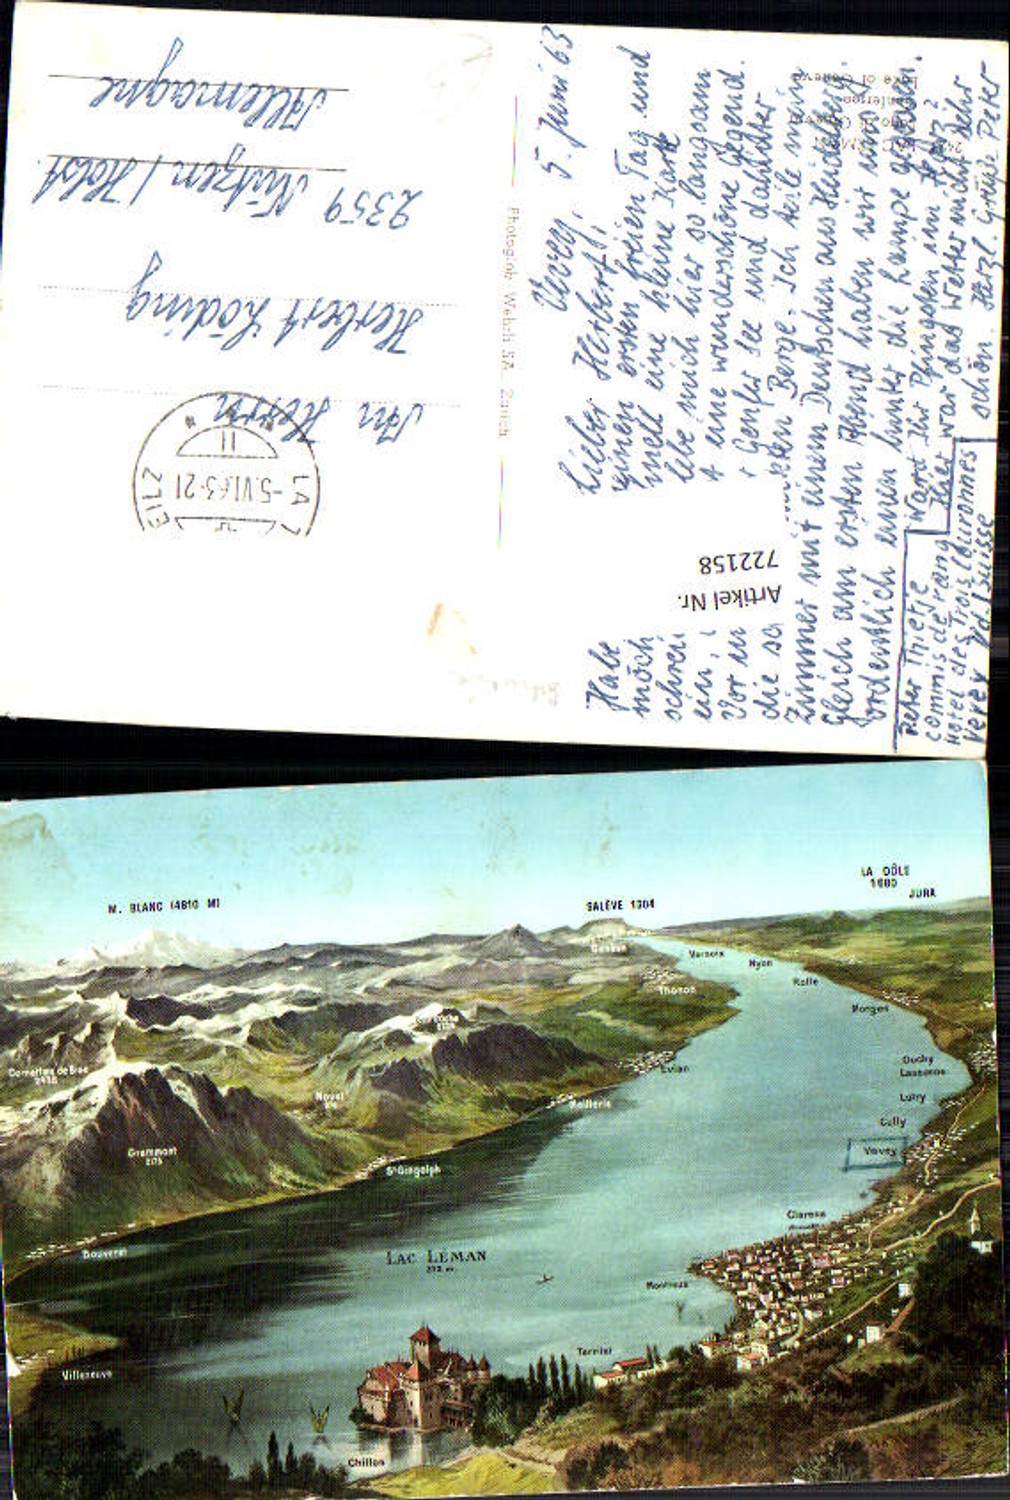 Vevey, 5. Juni 63
Lieber Herbert,
Habe einen ersten freien Tag und
möch will eine kleine Karte
schrei lebe mich hier so langsam
ein, eine wunderschöne Gegend.
Vor m Genfer See und dahinter
die sc kten Berge. Ich teile mein
Zimmer mit einem Deutschen aus Heidelberg.
Gleich am ersten Abend haben wir uns
ordentlich einen hinter die Lampe gegossen.
Ward Ihr Pfingsten im
Hier war das Wetter nicht sehr
schön. Herzl. Grüße Peter
Peter Thietje
commis de rang
Hotel des Trois Couronnes
Vevey Vd. / Suisse
LAC LEMAN
Lago di Ginevra
Genfersee
Lake of Geneva
Artikel Nr.
722158
Photoglob Wehrli SA, Zürich
An Herrn
Herbert Löding
2359 Nützen / Holst.
Allemagne
-5.VI.63-21
11
M. BLANC (4810 M)
SALÈVE 1304
LA DÔLE
1680
JURA
Genève
Versoix
Nyon
Rolle
Thonon
Morges
Evian
Ouchy
Lausanne
Lutry
Cully
Vevey
Cornettes de Bise
2438
Novel
Meillerie
Grammont
2175
St Gingolph
Clarens
Bouveret
LAC LÉMAN
372 m.
Montreux
Territet
Villeneuve
Chillon